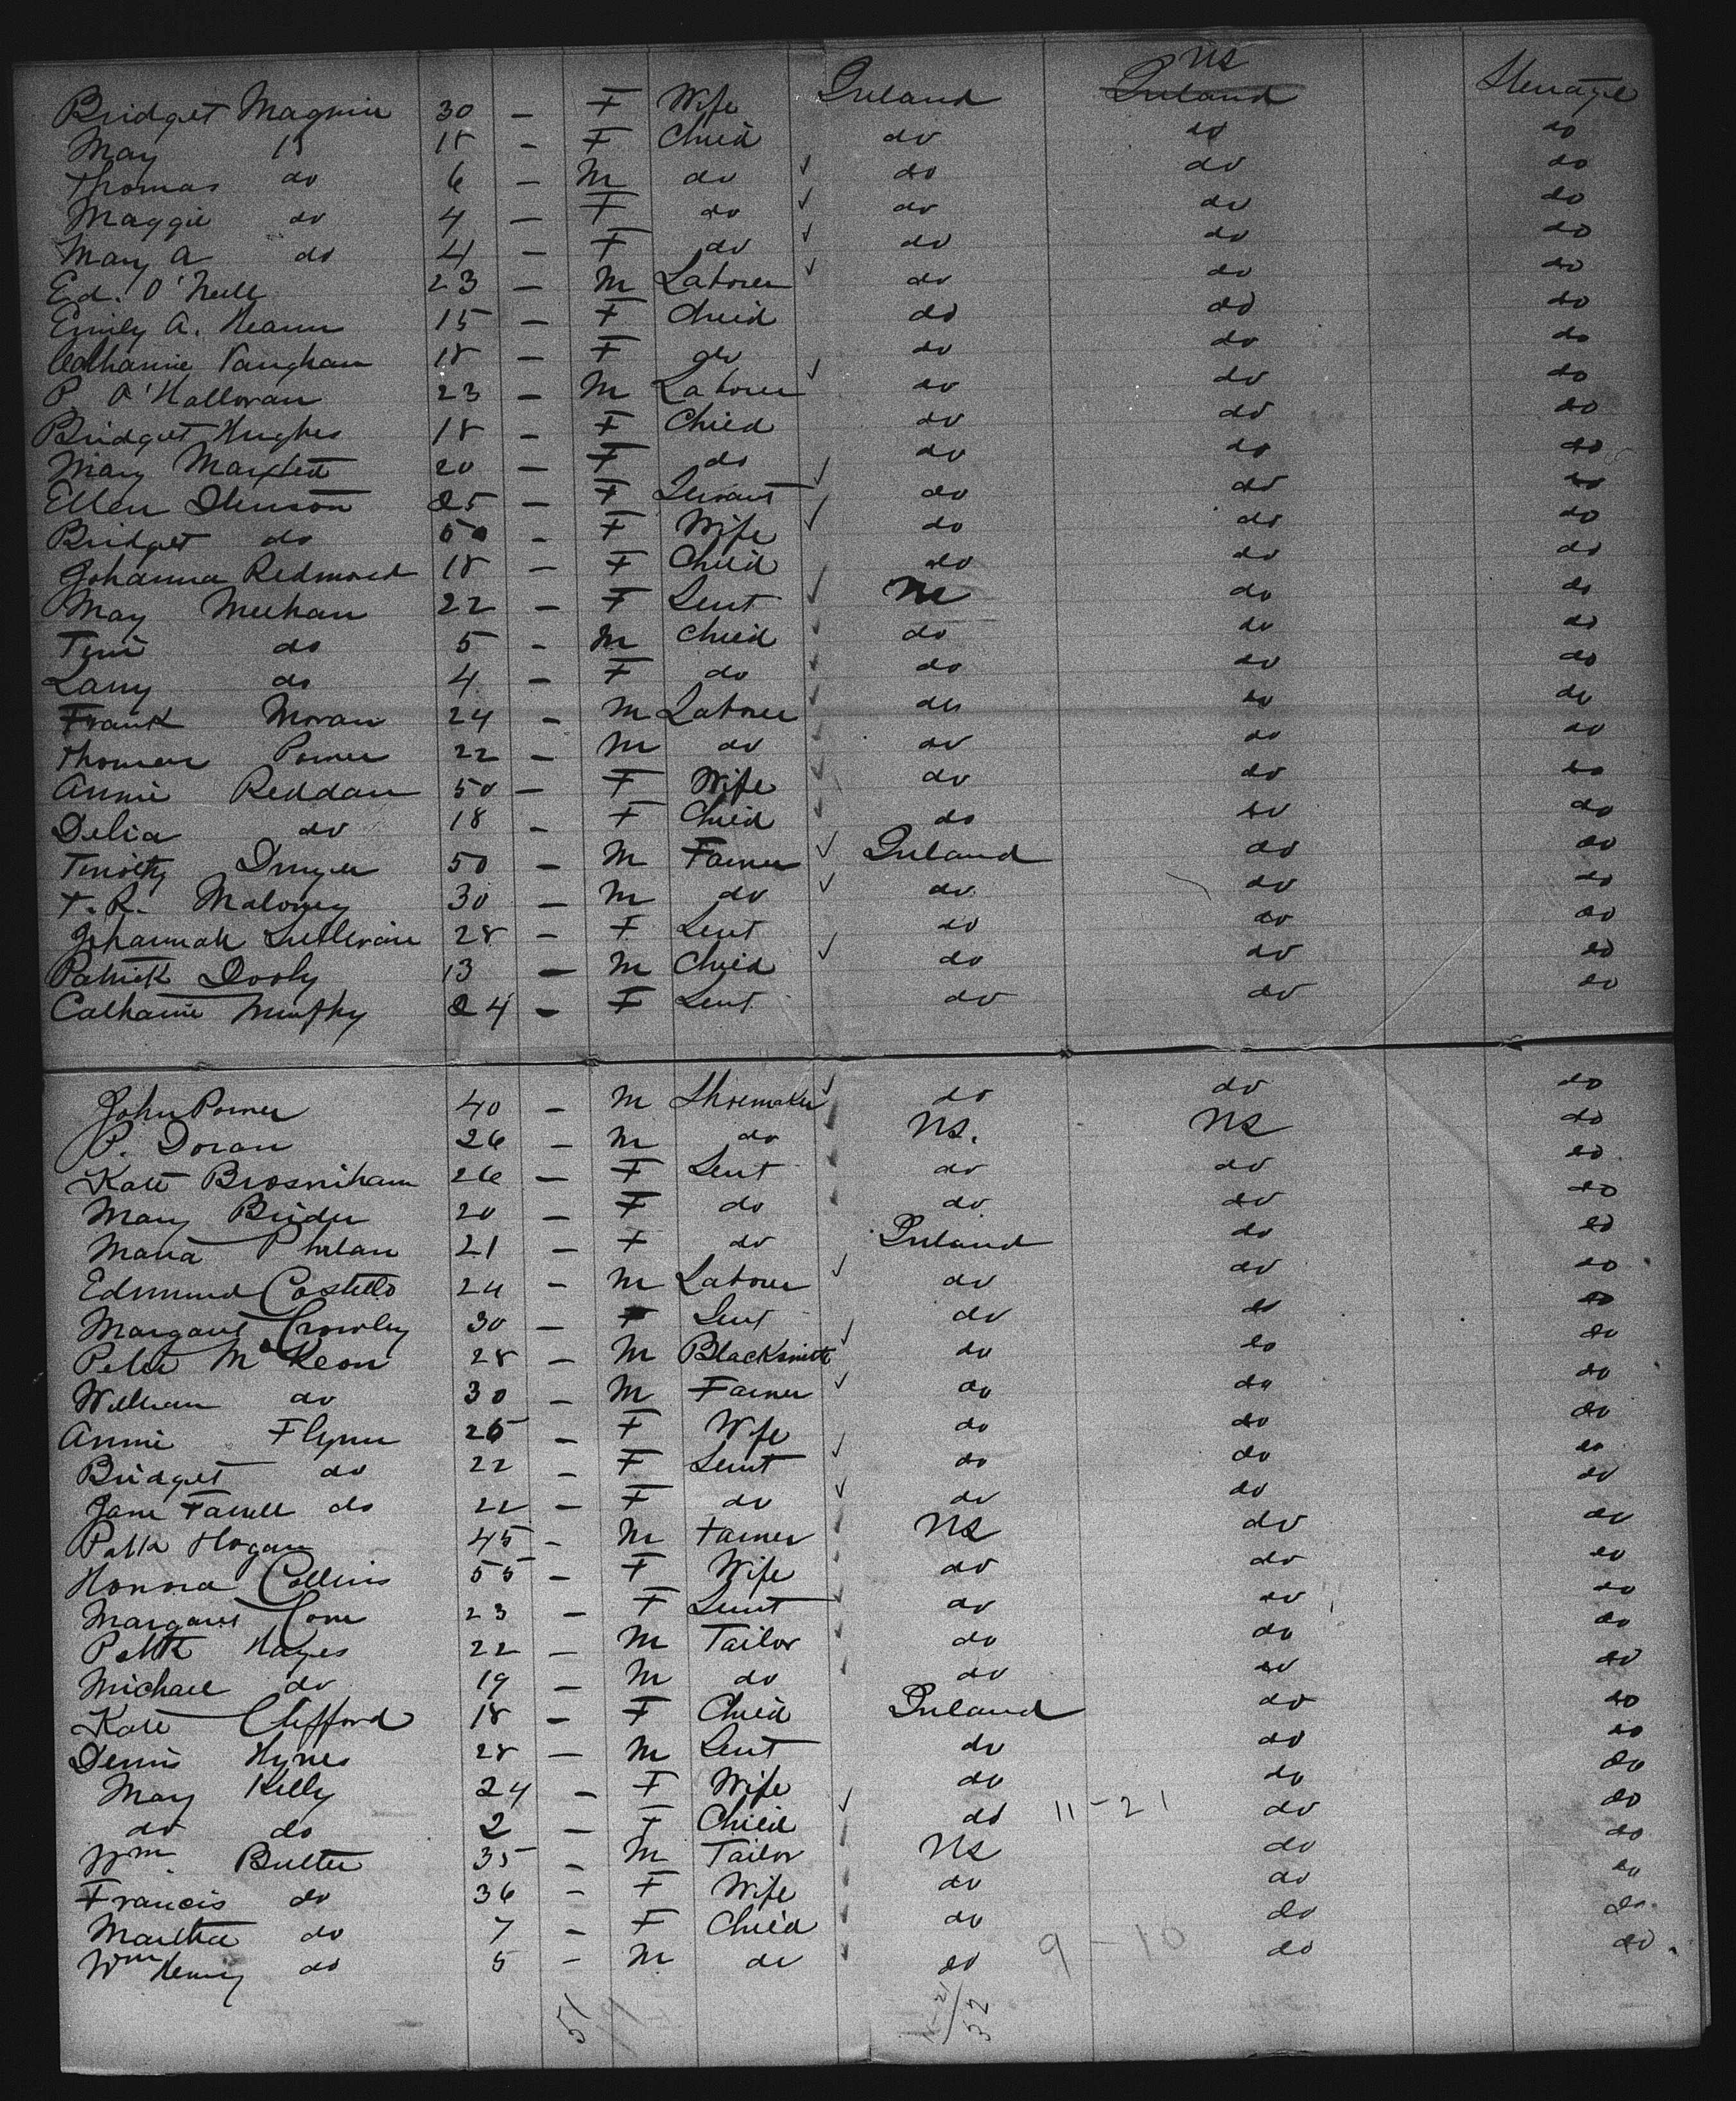 Bridget Maguire 30 — F Wife Ireland US Ireland Steerage
May 18 — F Child do do do
Thomas do 6 — M do ✓ do do do
Maggie do 4 — F do ✓ do do do
Mary A do 4 — F do ✓ do do do
Ed. O'Neill 23 — M Laborer ✓ do do do
Emily A. 15 — F Child do do do
Catharine Vaughan 18 — F do do do do
P. O'Halloran 23 — M Laborer ✓ do do do
Bridget Hughes 18 — F Child do do do
Mary 20 — F do do do do
Ellen 25 — F Servant ✓ do do do
Bridget do 50 — F Wife ✓ do do do
Johanna Redmond 18 — F Child do do do
May Meehan 22 — F Sevt ✓ US do do
Tim do 5 — M Child ✓ do do do
Larry do 4 — F do ✓ do do do
Frank Moran 24 — M Laborer ✓ do do do
Thomas Power 22 — M do ✓ do do do
Annie Reddan 50 — F Wife ✓ do do do
Delia do 18 — F Child ✓ do do do
Timothy Dwyer 50 — M Farmer ✓ Ireland do do
T. R. Maloney 30 — M do ✓ do do do
Johannah Sullivan 28 — F Sevt do do do
Patrick Dooly 13 — M Child ✓ do do do
Catharine Murphy 24 — F Sevt do do do
John Power 40 — M Shoemaker ✓ do do do
P. Doran 26 — M do US. US do
Kate Brosniham 26 — F Sevt do do do
Mary Brider 20 — F do do do do
Maria Phelan 21 — F do Ireland do do
Edmund Costello 24 — M Laborer ✓ do do do
Margaret Crowley 30 — F Sevt do do do
Peter McKeon 28 — M Blacksmith ✓ do do do
William do 30 — M Farmer ✓ do do do
Annie Flynn 25 — F Wife do do do
Bridget do 22 — F Sevt ✓ do do do
Jane Farrell do 22 — F do ✓ do do do
Patk Hogan 45 — M Farmer US do do
Honora Collins 55 — F Wife do do do
Margaret 23 — F Sevt ✓ do do do
Patk Hayes 22 — M Tailor ✓ do do do
Michael do 19 — M do do do do
Kate Clifford 18 — F Child Ireland do do
Denis Hynes 28 — M Sevt do do do
May Kelly 24 — F Wife do do do
do do 2 — F Child ✓ do 11-21 do do
Wm. Butler 35 — M Tailor ✓ US do do
Francis do 36 — F Wife do do do
Martha do 7 — F Child do do do
Wm Henry do 5 — M do do 9-10 do do
51